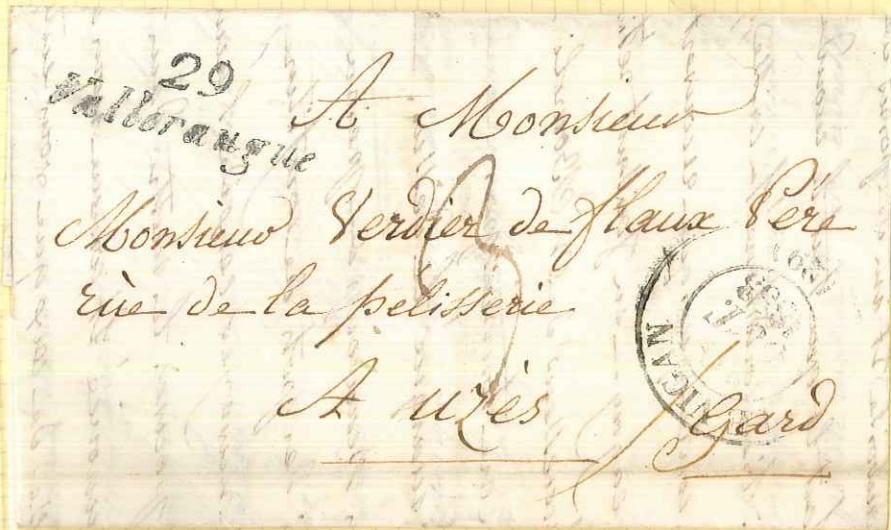 29
Valleraugue
A Monsieur
Monsieur Verdier de flaux Pére
rüe de la pélisserie
3
A uzès Gard
VIGAN
(29)